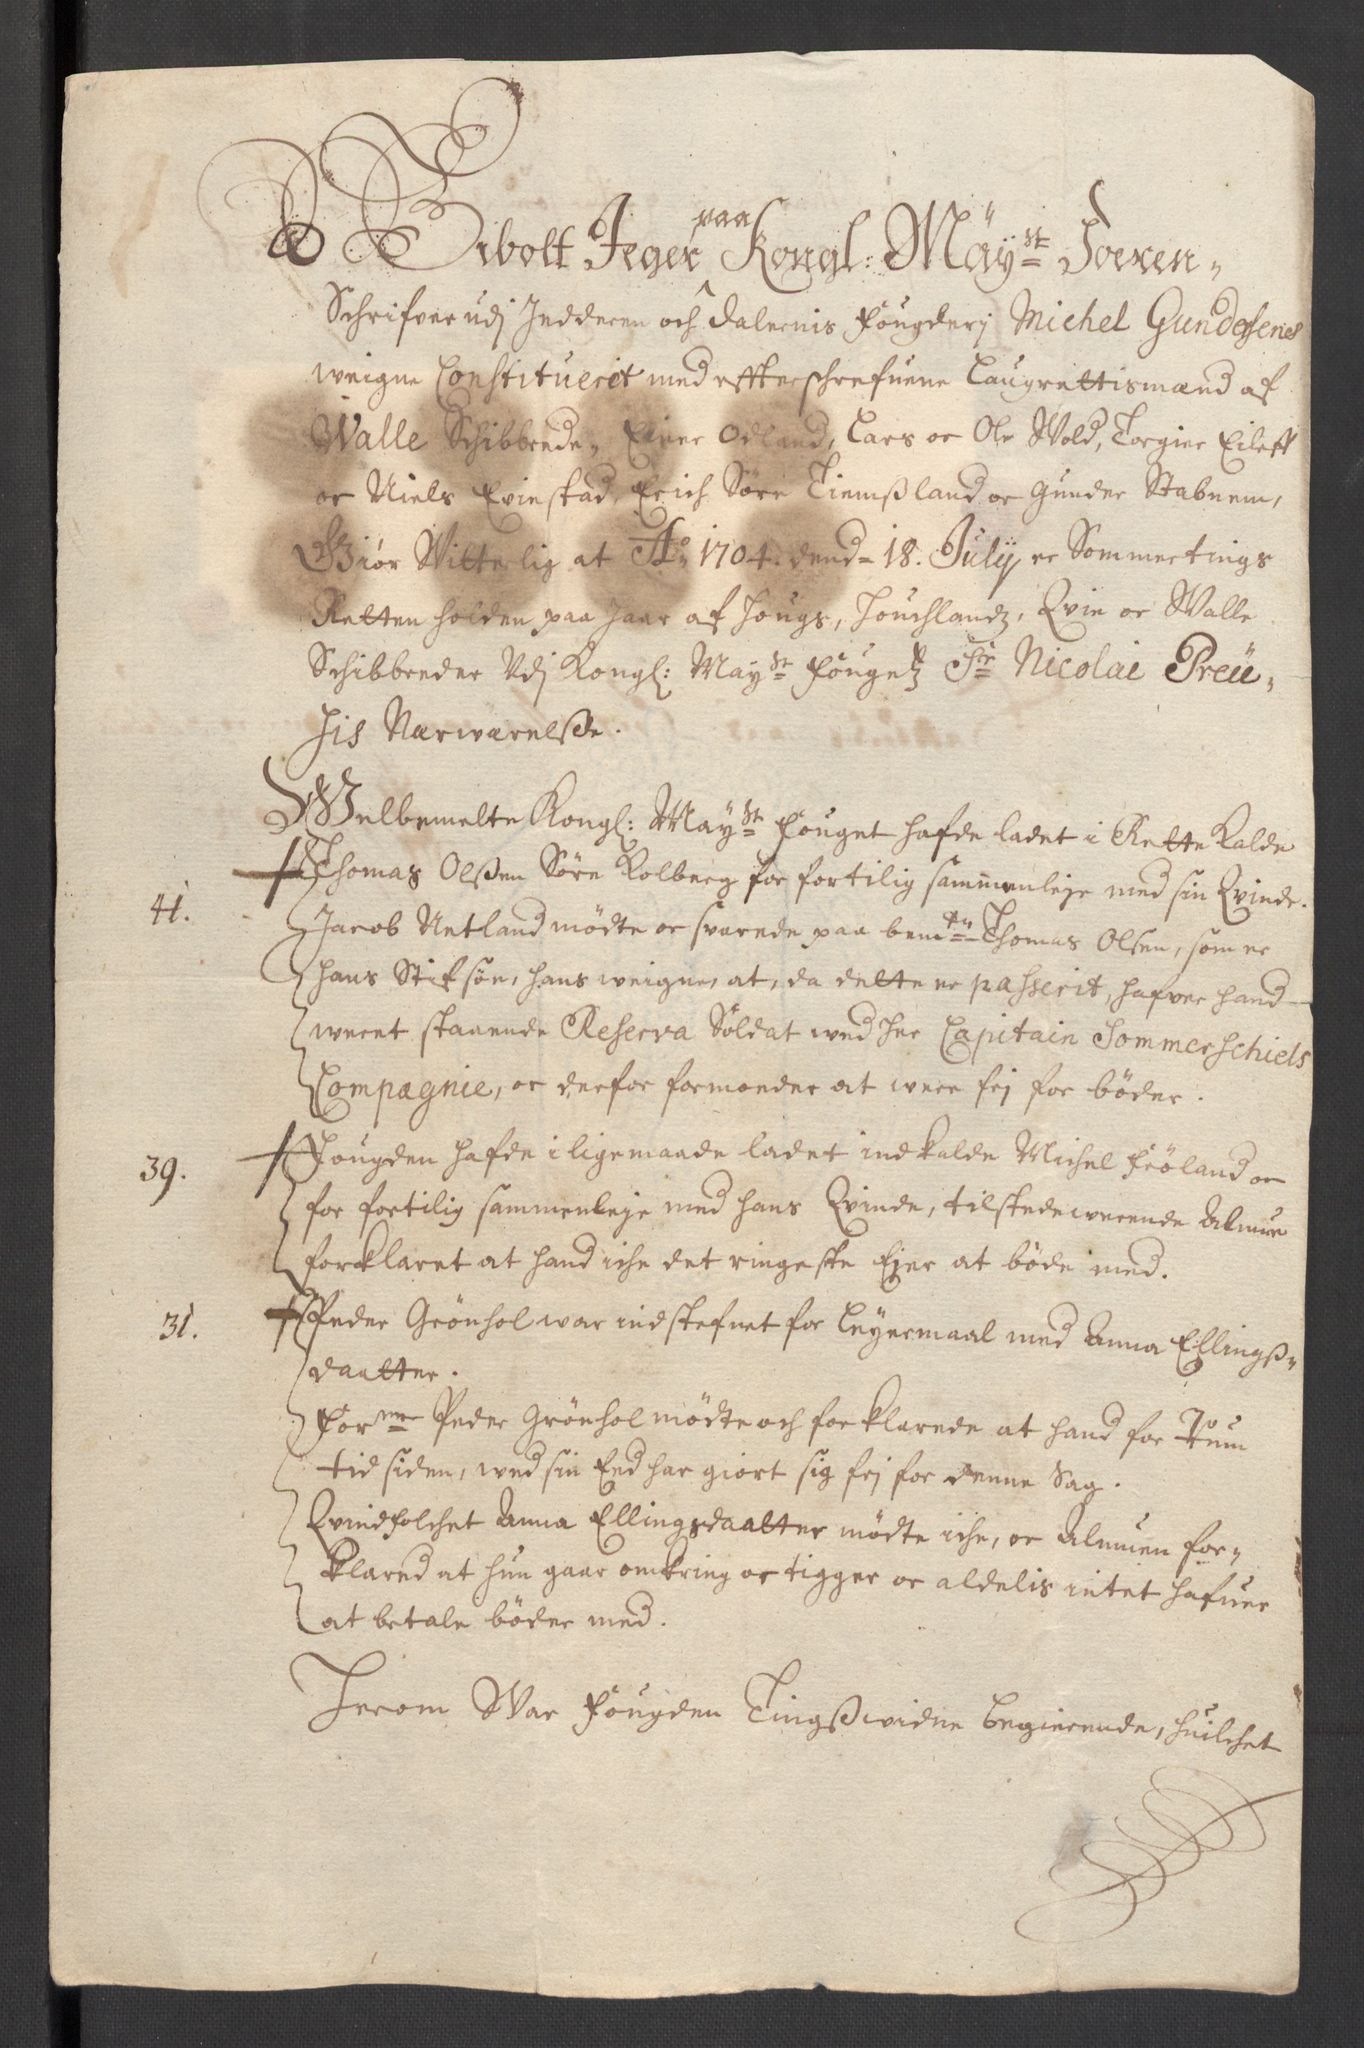 Wibolt Jeger paa Kongl: Mayst: Soeren-
Schrifver udj Jedderen och Dalernis fougderj Michel Gundersens
weigne Constituerit med effterschrefuene Laugrettismænd af
Walle Schibbrede, Einer Odland, Lars oc Ole Wold, Torgier Eileff
oc Niels Evinstad, Erich Søre Tiemßland oc Gunder Stabnem,
Giør Witterlig at Ao 1704. dend 18. Julij er Sommertings
Retten holden paa Haar af Hougs, Houchlandz, Qvie oc Walle
Schibbreder Udj Kongl: Mayst: fougetz Sr Nicolai Preü-
sis Nærwærelße.
Welbemelte Kongl: Mayst: fouget hafde ladet i Rette Kalde
Thomas Olßen Søre Kolberg for fortilig sammenleje med sin Qvinde.
41.
Jacob Netland mødte oc svarede paa bemte Thomas Olsen, som er
hans Stifsøn, hans weigne, at, da dette er passerit, hafver hand
weret staaende Reserva Soldat wed Her Capitain Sommerschiels
Compagnie, oc derfor formoeder at were frj for bøder.
39.
Fougden hafde i ligemaade ladet indkalde Michel Frøland oc
for fortilig sammenleje med hans Qvinde, tilstedewerende Almue
forklaret at hand iche det ringeste Ejer at bøde med.
31.
Peder Grönhol war indstefnet for Leyermaal med Anna Ellingß-
daatter.
forme Peder Grönhol mødte och forklarede at hand for Rum
tid siden, wed sin Eed har giort sig frj for denne Sag.
Qvindfolchet Anna Ellingsdaatter mødte iche, oc Almuen for-
klared at hun gaar omkring oc tigger oc aldelis intet hafuer
at betale bøder med.
Herom War fougden Tingßwidne begierende, huilchet